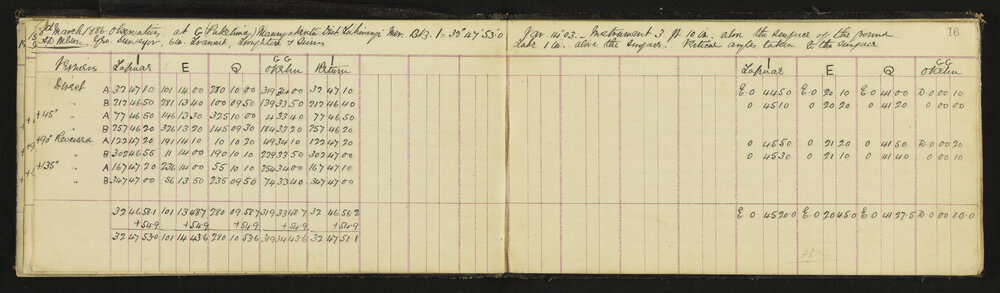 8th March 1886 Observations at G (Puketina) Maungakaretu Dist Tuhirangi Mer. B/3. 1 = 32° 47' 53·0
Geo. Surveyor, 6in Transit, Troughton & Simms
Mar 14·03 – Instrument 3 ft 10 in. above the surface of the ground
above the surface. Vertical angles taken to the surface
16
Verniers Return
E Q GG
Direct A 32 47 10 101 14 00 280 10 00 319 34 00 32 47 10
" B 212 46 50 281 13 40 100 09 50 139 33 50 212 46 40
+45° A 77 46 50 146 13 30 325 10 00 4 33 40 77 46 50
" B 257 46 20 326 13 20 145 09 30 184 33 20 257 46 20
+90° Reversed A 122 47 20 191 14 10 10 10 20 49 34 10 122 47 20
" B 302 46 55 11 14 00 190 10 10 229 33 50 302 47 00
+135° A 167 47 20 236 14 00 55 10 10 274 34 00 167 47 10
" B 347 47 00 56 13 50 235 09 50 74 33 40 347 47 00
32 46 58·1 101 13 48·7 280 09 58·7 319 33 48·7 32 46 56·2
+54·9 +54·9 +54·9 +54·9 +54·9
32 47 53·0 101 14 43·6 280 10 53·6 319 34 43·6 32 47 51·1
E Q GG
E. 0 44 50 E. 0 20 10 E. 0 41 00 D. 0 00 10
0 45 10 0 20 20 0 41 20 0 00 00
0 45 50 0 21 20 0 41 50 D. 0 00 20
0 45 30 0 21 10 0 41 40 0 00 10
E. 0 45 20·0 E. 0 20 45·0 E. 0 41 27·5 D. 0 00 10·0